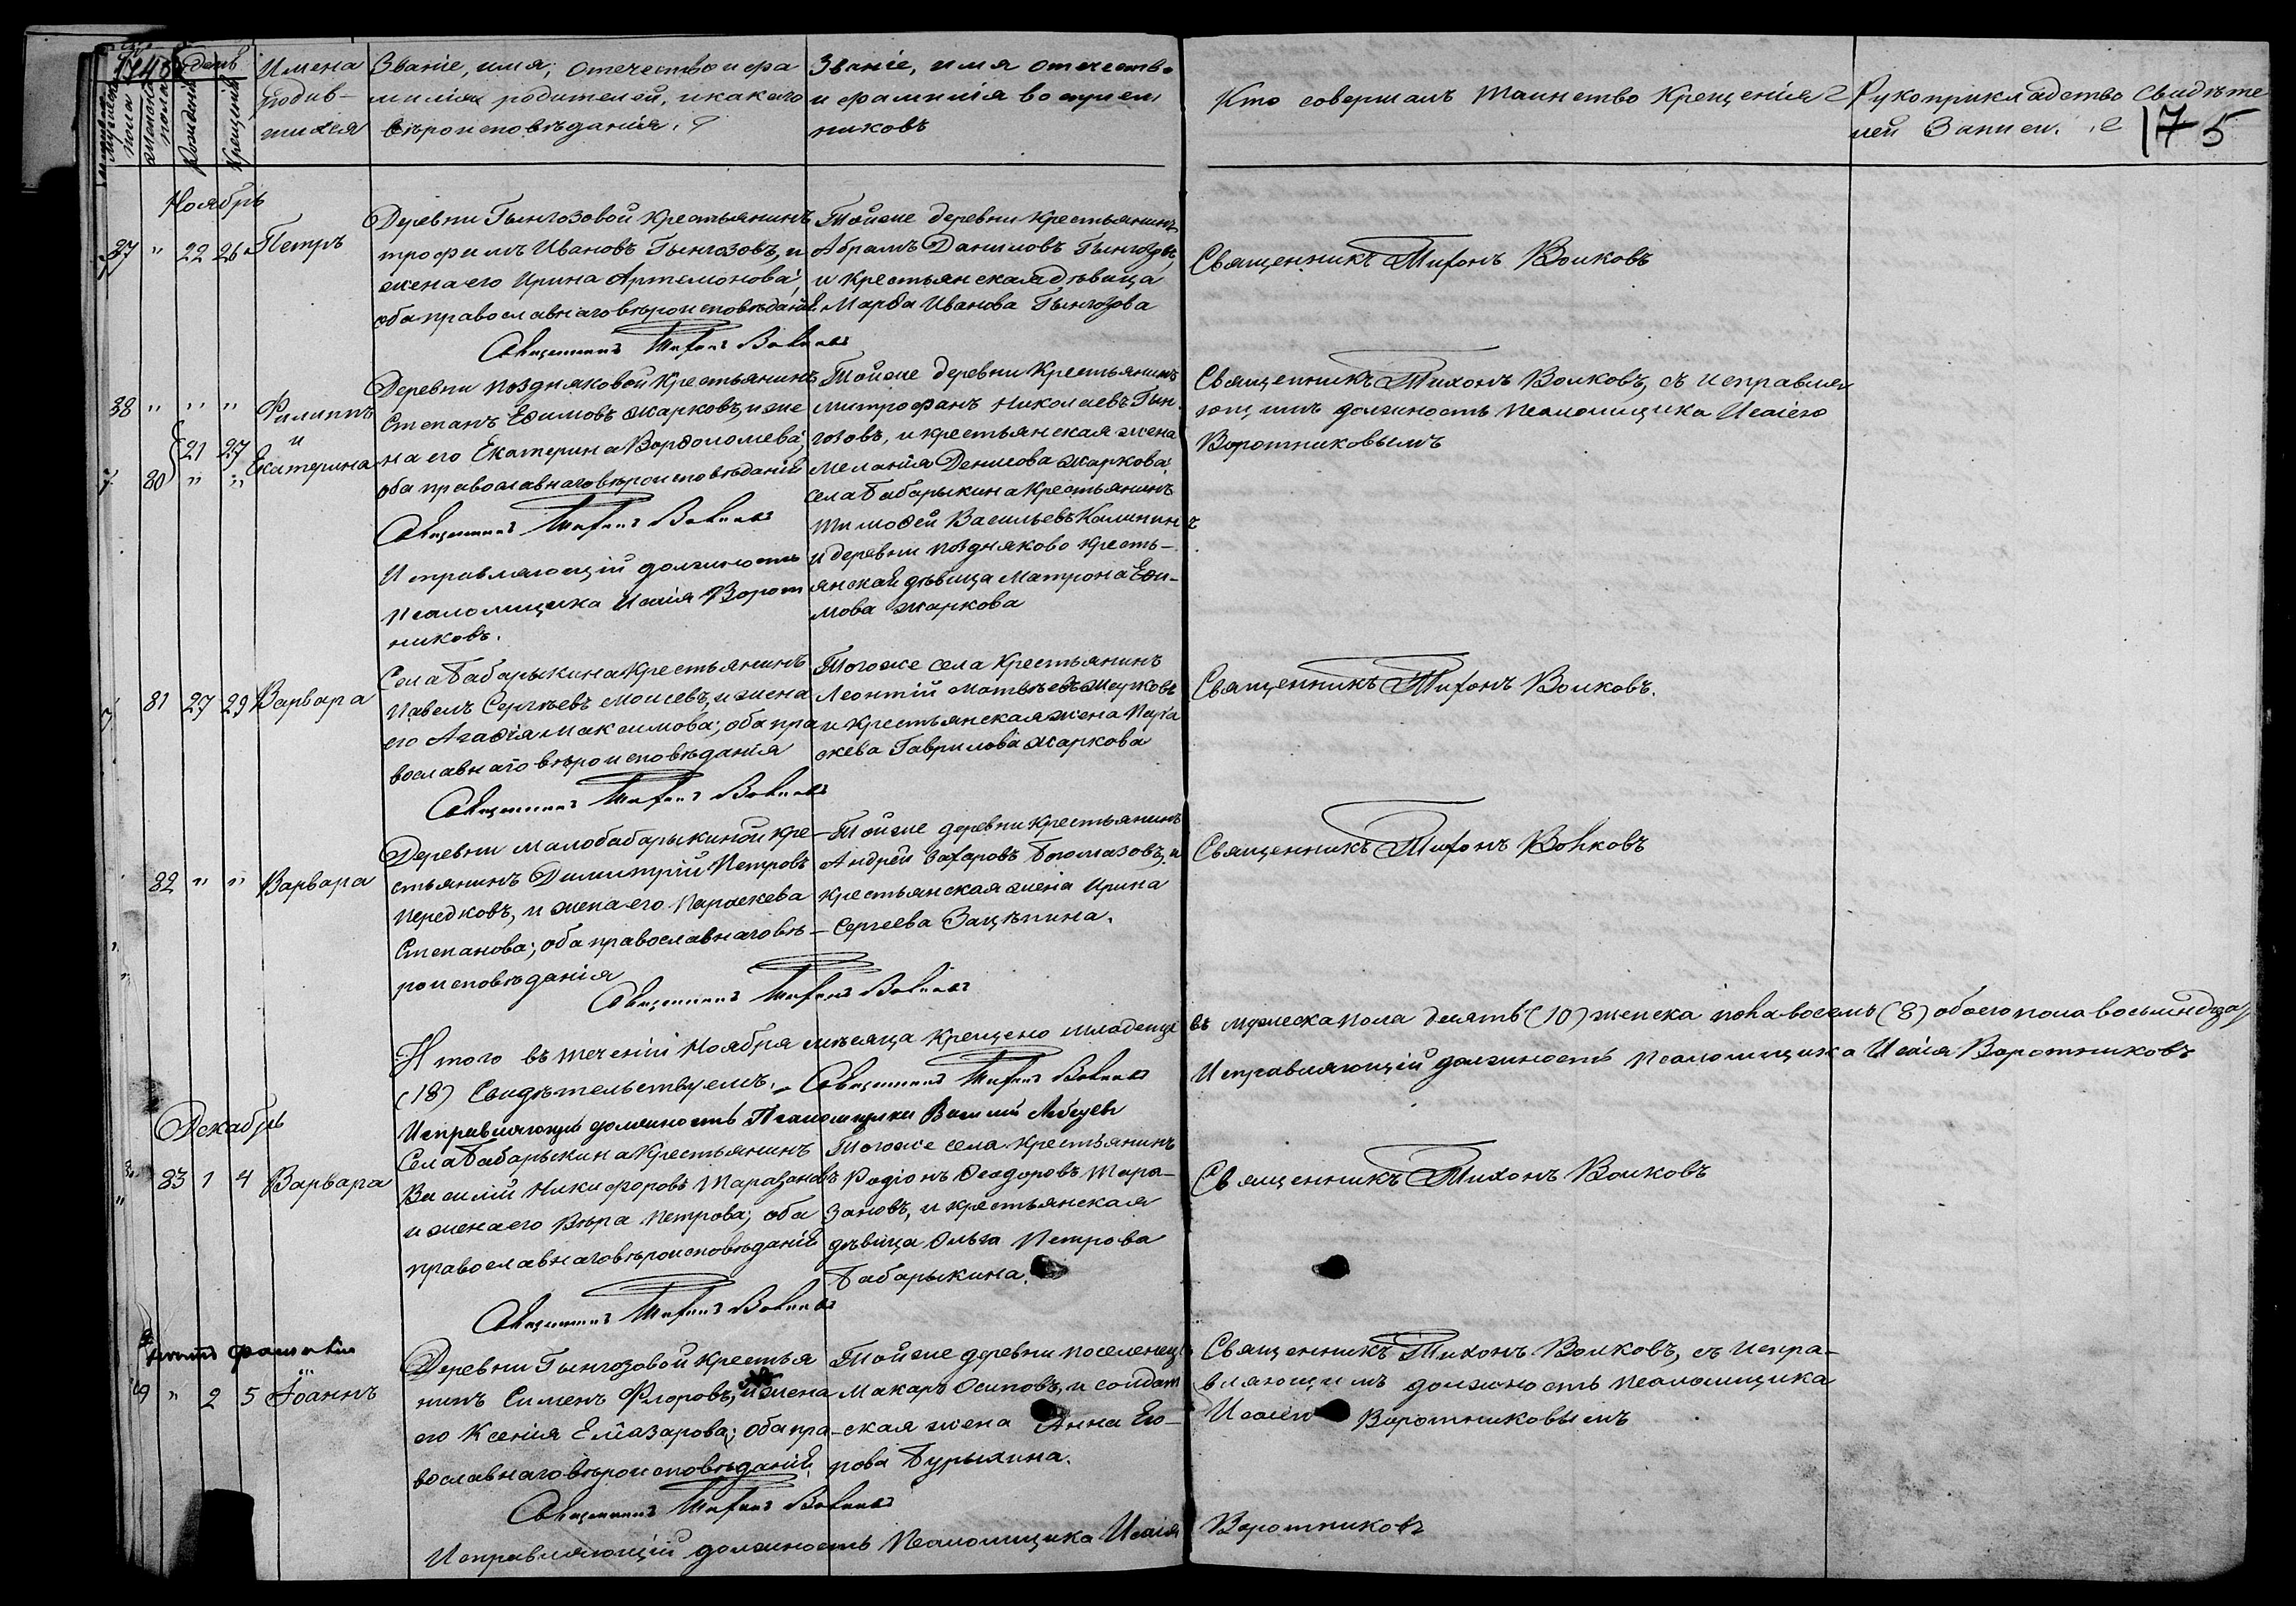 Имена родив-шихся
Званіе, имя, отечество и фа
милія родителей, и какого
вѣроисповѣданія.
Званіе, имя отечество
и фамилія воспріем
никовъ
Кто совершалъ таинство крещенія
Рукоприкладство свидѣте
лей записи.
175
Ноябрь
37 " 22 26 Петръ
Деревни Гынгозовой крестьянинъ
трофимъ Ивановъ Гынгозовъ, и
жена его Ирина Артемонова,
оба православнаго вѣроисповѣданія
Священникъ Тихонъ Волковъ
Тойже деревни крестьянинъ
Абрамъ Даниловъ Гынгозовъ,
и крестьянская дѣвица
Марѳа Иванова Гынгозова
Священникъ Тихонъ Волковъ
38 " " " Филиппъ
и
21 27
80 " " Екатерина
Деревни Поздняковой крестьянинъ
Степанъ Еѳимовъ Жарковъ, и же
на его Екатерина Ворѳоломева,
оба православнаго вѣроисповѣданія
Священникъ Тихонъ Волковъ
Исправляющій должность
Псаломщика Исаія Ворот
никовъ.
Тойже деревни Крестьянинъ
Митрофанъ Николаевъ Гын
гозовъ, и крестьянская жена
Меланія Денисова Жаркова,
села Бабарыкина Крестьянинъ
Тимоѳей Васильевъ Калининъ
и деревни Поздняково кресть-
янская дѣвица Матрона Еѳи-
мова Жаркова
Священникъ Тихонъ Волковъ, съ исправля
ющимъ должность Псаломщика Исаіею
Воротниковымъ
81 27 29 Варвара
Села Бабарыкина Крестьянинъ
Павелъ Сергѣевъ Моисевъ, и жена
его Агаѳія Максимова; оба пра
вославнаго вѣроисповѣданія
Священникъ Тихонъ Волковъ
Тогоже села Крестьянинъ
Леонтій Матвѣевъ Жарковъ
и крестьянская жена Пара
скева Гаврилова Жаркова
Священникъ Тихонъ Волковъ.
82 " " Варвара
Деревни Малобабарыкиной кре-
стьянинъ Димитрій Петровъ
Передковъ, и жена его Параскева
Степанова; оба православнаго вѣ-
роисповѣданія
Священникъ Тихонъ Волковъ
Тойже деревни крестьянинъ
Андрей Захаровъ Богомазовъ, и
крестьянская жена Ирина
Сергеева Зацѣпина.
Священникъ Тихонъ Волковъ
Итого въ теченіи Ноября мѣсяца крещено младенце въ мужеска пола десять (10) женска пола восемь (8) обоего пола восьмнадца
(18) Свидѣтельствуемъ. Священникъ Тихонъ Волковъ Исправляющій должность Псаломщика Исаія Воротниковъ
Исправляющій должность Псаломщика Василій Лебедевъ
Декабрь
83 1 4 Варвара
Села Бабарыкина Крестьянинъ
Василій Никифоровъ Таразановъ
и жена его Вѣра Петрова; оба
православнаго вѣроисповѣданія
Священникъ Тихонъ Волковъ
Тогоже села крестьянинъ
Родіонъ Ѳеодоровъ Тара-
зановъ, и крестьянская
дѣвица Ольга Петрова
Бабарыкина.
Священникъ Тихонъ Волковъ
фамиліи
9 " 2 5 Іоаннъ
Деревни Гынгозовой крестья
нинъ Сименъ Флоровъ, и жена
его Ксенія Елиазарова; оба пра-
вославнаго вѣроисповѣданія,
Священникъ Тихонъ Волковъ
Тойже деревни поселенецъ
Макаръ Осиповъ, и солдат
ская жена Анна Его-
рова Бурыхина.
Священникъ Тихонъ Волковъ, съ испра-
вляющимъ должность псаломщика
Исаіею Воротниковымъ
Исправляющій должность Псаломщика Исаія Воротниковъ